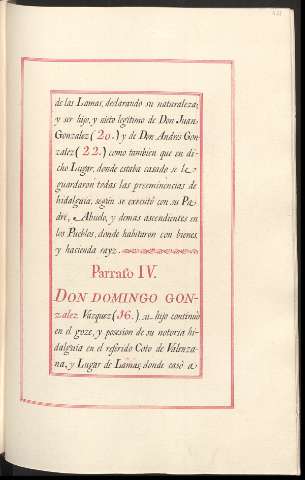 de las Lamas, declarando su naturaleza,
y ser hijo, y nieto legitimo de Don Juan
Gonzalez (20.) y de Don Andres Gon-
zalez (22.) como tambien que en di-
cho Lugar, donde estaba casado se le
guardaron todas las preeminencias de
hidalguia, segun se executó con su Pa-
dre, Abuelo, y demas ascendientes en
los Pueblos, donde habitaron con bienes,
y hacienda rayz.
Parrafo IV.
DON DOMINGO GON-
zalez Vazquez (36.) su hijo continuó
en el goze, y posesion de su notoria hi-
dalguia en el referido Coto de Valenza-
na, y Lugar de Lamas, donde casó a